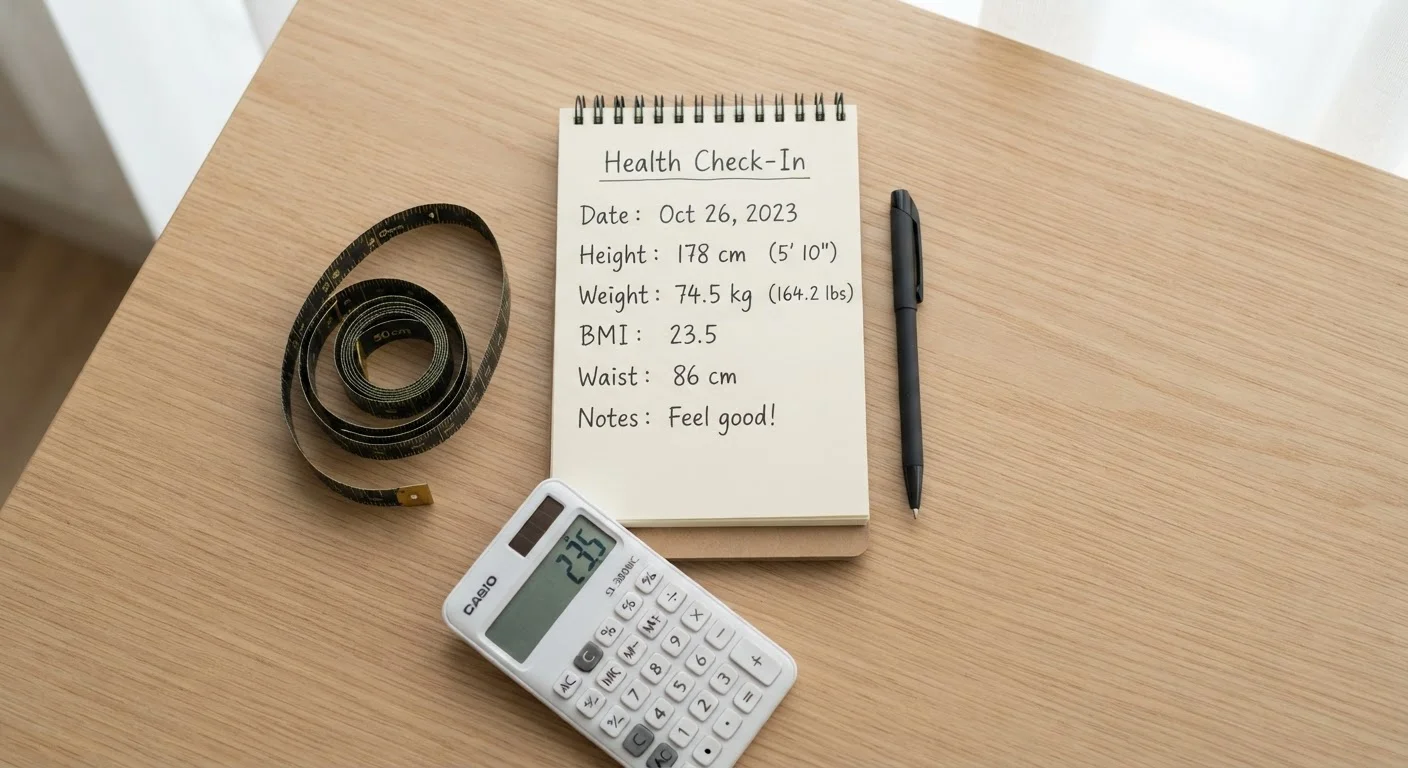 Health Check-In
Date: Oct 26, 2023
Height: 178 cm (5' 10")
Weight: 74.5 kg (164.2 lbs)
BMI: 23.5
Waist: 86 cm
Notes: Feel good!
50cm
23.5
CASIO
AC C % % %
M- M+ ÷
7 8 9 ×
4 5 6 −
1 2 3 +
C AC . =